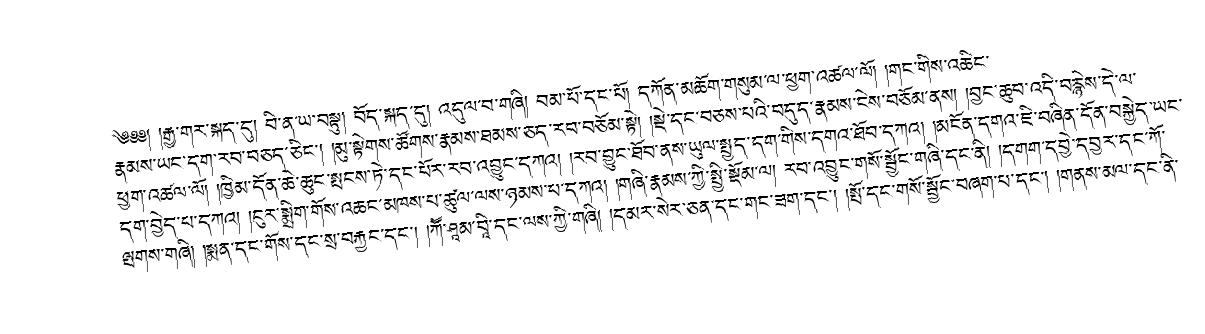 ༄༅༅། །རྒྱ་གར་སྐད་དུ། བི་ན་ཡ་བསྟུ། བོད་སྐད་དུ། འདུལ་བ་གཞི། བམ་པོ་དང་པོ། དཀོན་མཆོག་གསུམ་ལ་ཕྱག་འཚལ་ལོ། །གང་གིས་འཆིང་
རྣམས་ཡང་དག་རབ་བཅད་ཅིང་། །མུ་སྟེགས་ཚོགས་རྣམས་ཐམས་ཅད་རབ་བཅོམ་སྟེ། །སྡེ་དང་བཅས་པའི་བདུད་རྣམས་ངེས་བཅོམ་ནས། །བྱང་ཆུབ་འདི་བརྙེས་དེ་ལ་
ཕྱག་འཚལ་ལོ། །ཁྱིམ་དོན་ཆེ་ཆུང་སྤངས་ཏེ་དང་པོར་རབ་འབྱུང་དཀའ། །རབ་བྱུང་ཐོབ་ནས་ཡུལ་སྤྱད་དག་གིས་དགའ་ཐོབ་དཀའ། །མངོན་དགའ་ཇི་བཞིན་དོན་བསྐྱེད་ཡང་
དག་བྱེད་པ་དཀའ། །ངུར་སྨྲིག་གོས་འཆང་མཁས་པ་ཚུལ་ལས་ཉམས་པ་དཀའ། །གཞི་རྣམས་ཀྱི་སྤྱི་སྡོམ་ལ། རབ་འབྱུང་གསོ་སྦྱོང་གཞི་དང་ནི། །དགག་དབྱེ་དབྱར་དང་ཀོ་
ལྤགས་གཞི། །སྨན་དང་གོས་དང་སྲ་བརྐྱང་དང་། །ཀཽ་ཤཱམ་བཱི་དང་ལས་ཀྱི་གཞི། །དམར་སེར་ཅན་དང་གང་ཟག་དང་། །སྤོ་དང་གསོ་སྦྱོང་བཞག་པ་དང་། །གནས་མལ་དང་ནི་